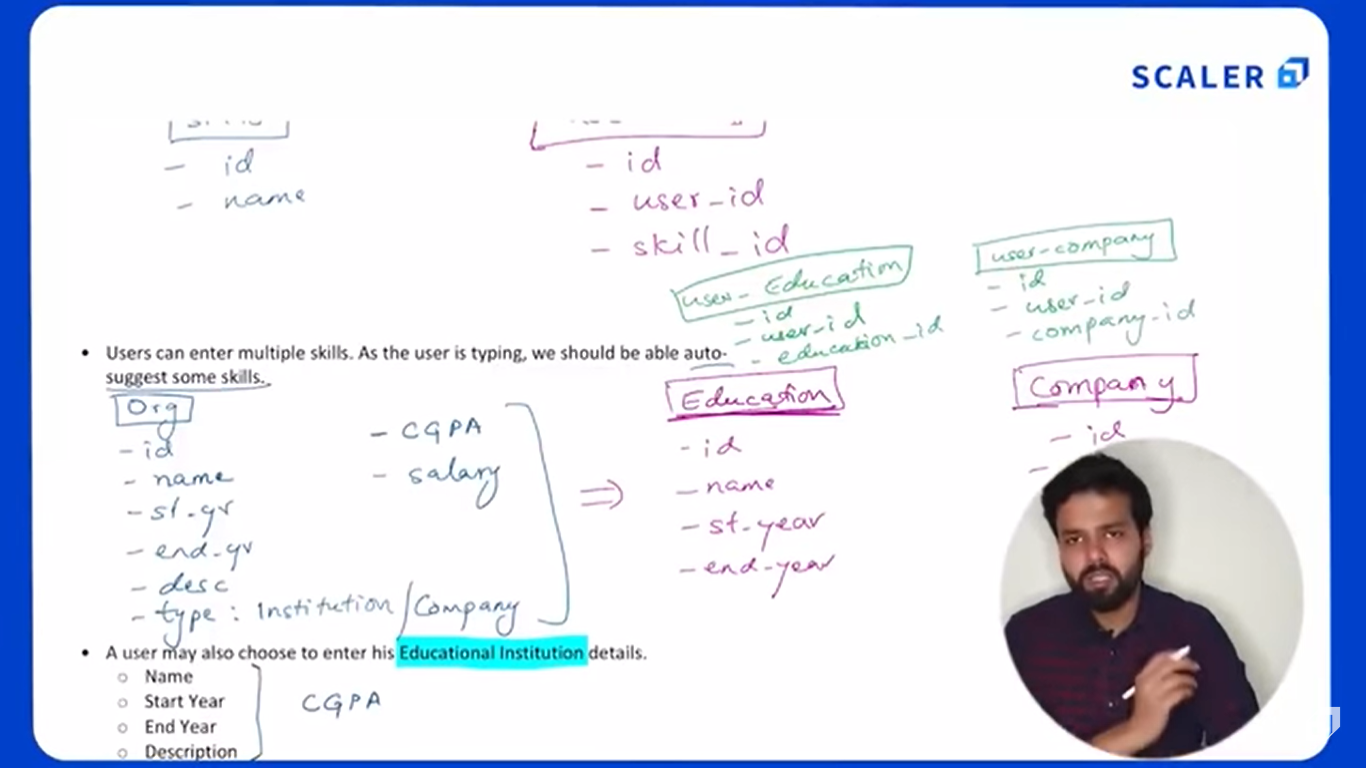 SCALER
- id
- name
- id
- user_id
- skill_id
user-Education
- id
- user-id
- education_id
user-company
- id
- user-id
- company-id
• Users can enter multiple skills. As the user is typing, we should be able auto-
suggest some skills.
Org
- id
- name
- st-yr
- end-yr
- desc
- type: Institution/Company
- CGPA
- salary
⇒
Education
- id
- name
- st-year
- end-year
Company
- id
-
• A user may also choose to enter his Educational Institution details.
○ Name
○ Start Year
○ End Year
○ Description
CGPA